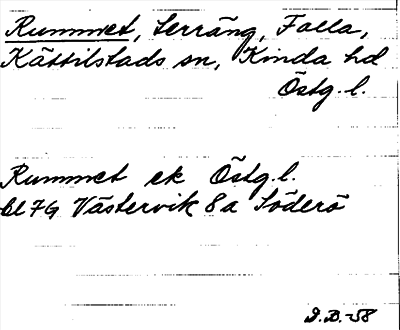 Rummet, Serräng, Falla,
Kättilstads sn, Kinda hd
Östg. l.
Rummet ek Östg. l.
bl 7G Västervik 8a Söderö
D.B.-58